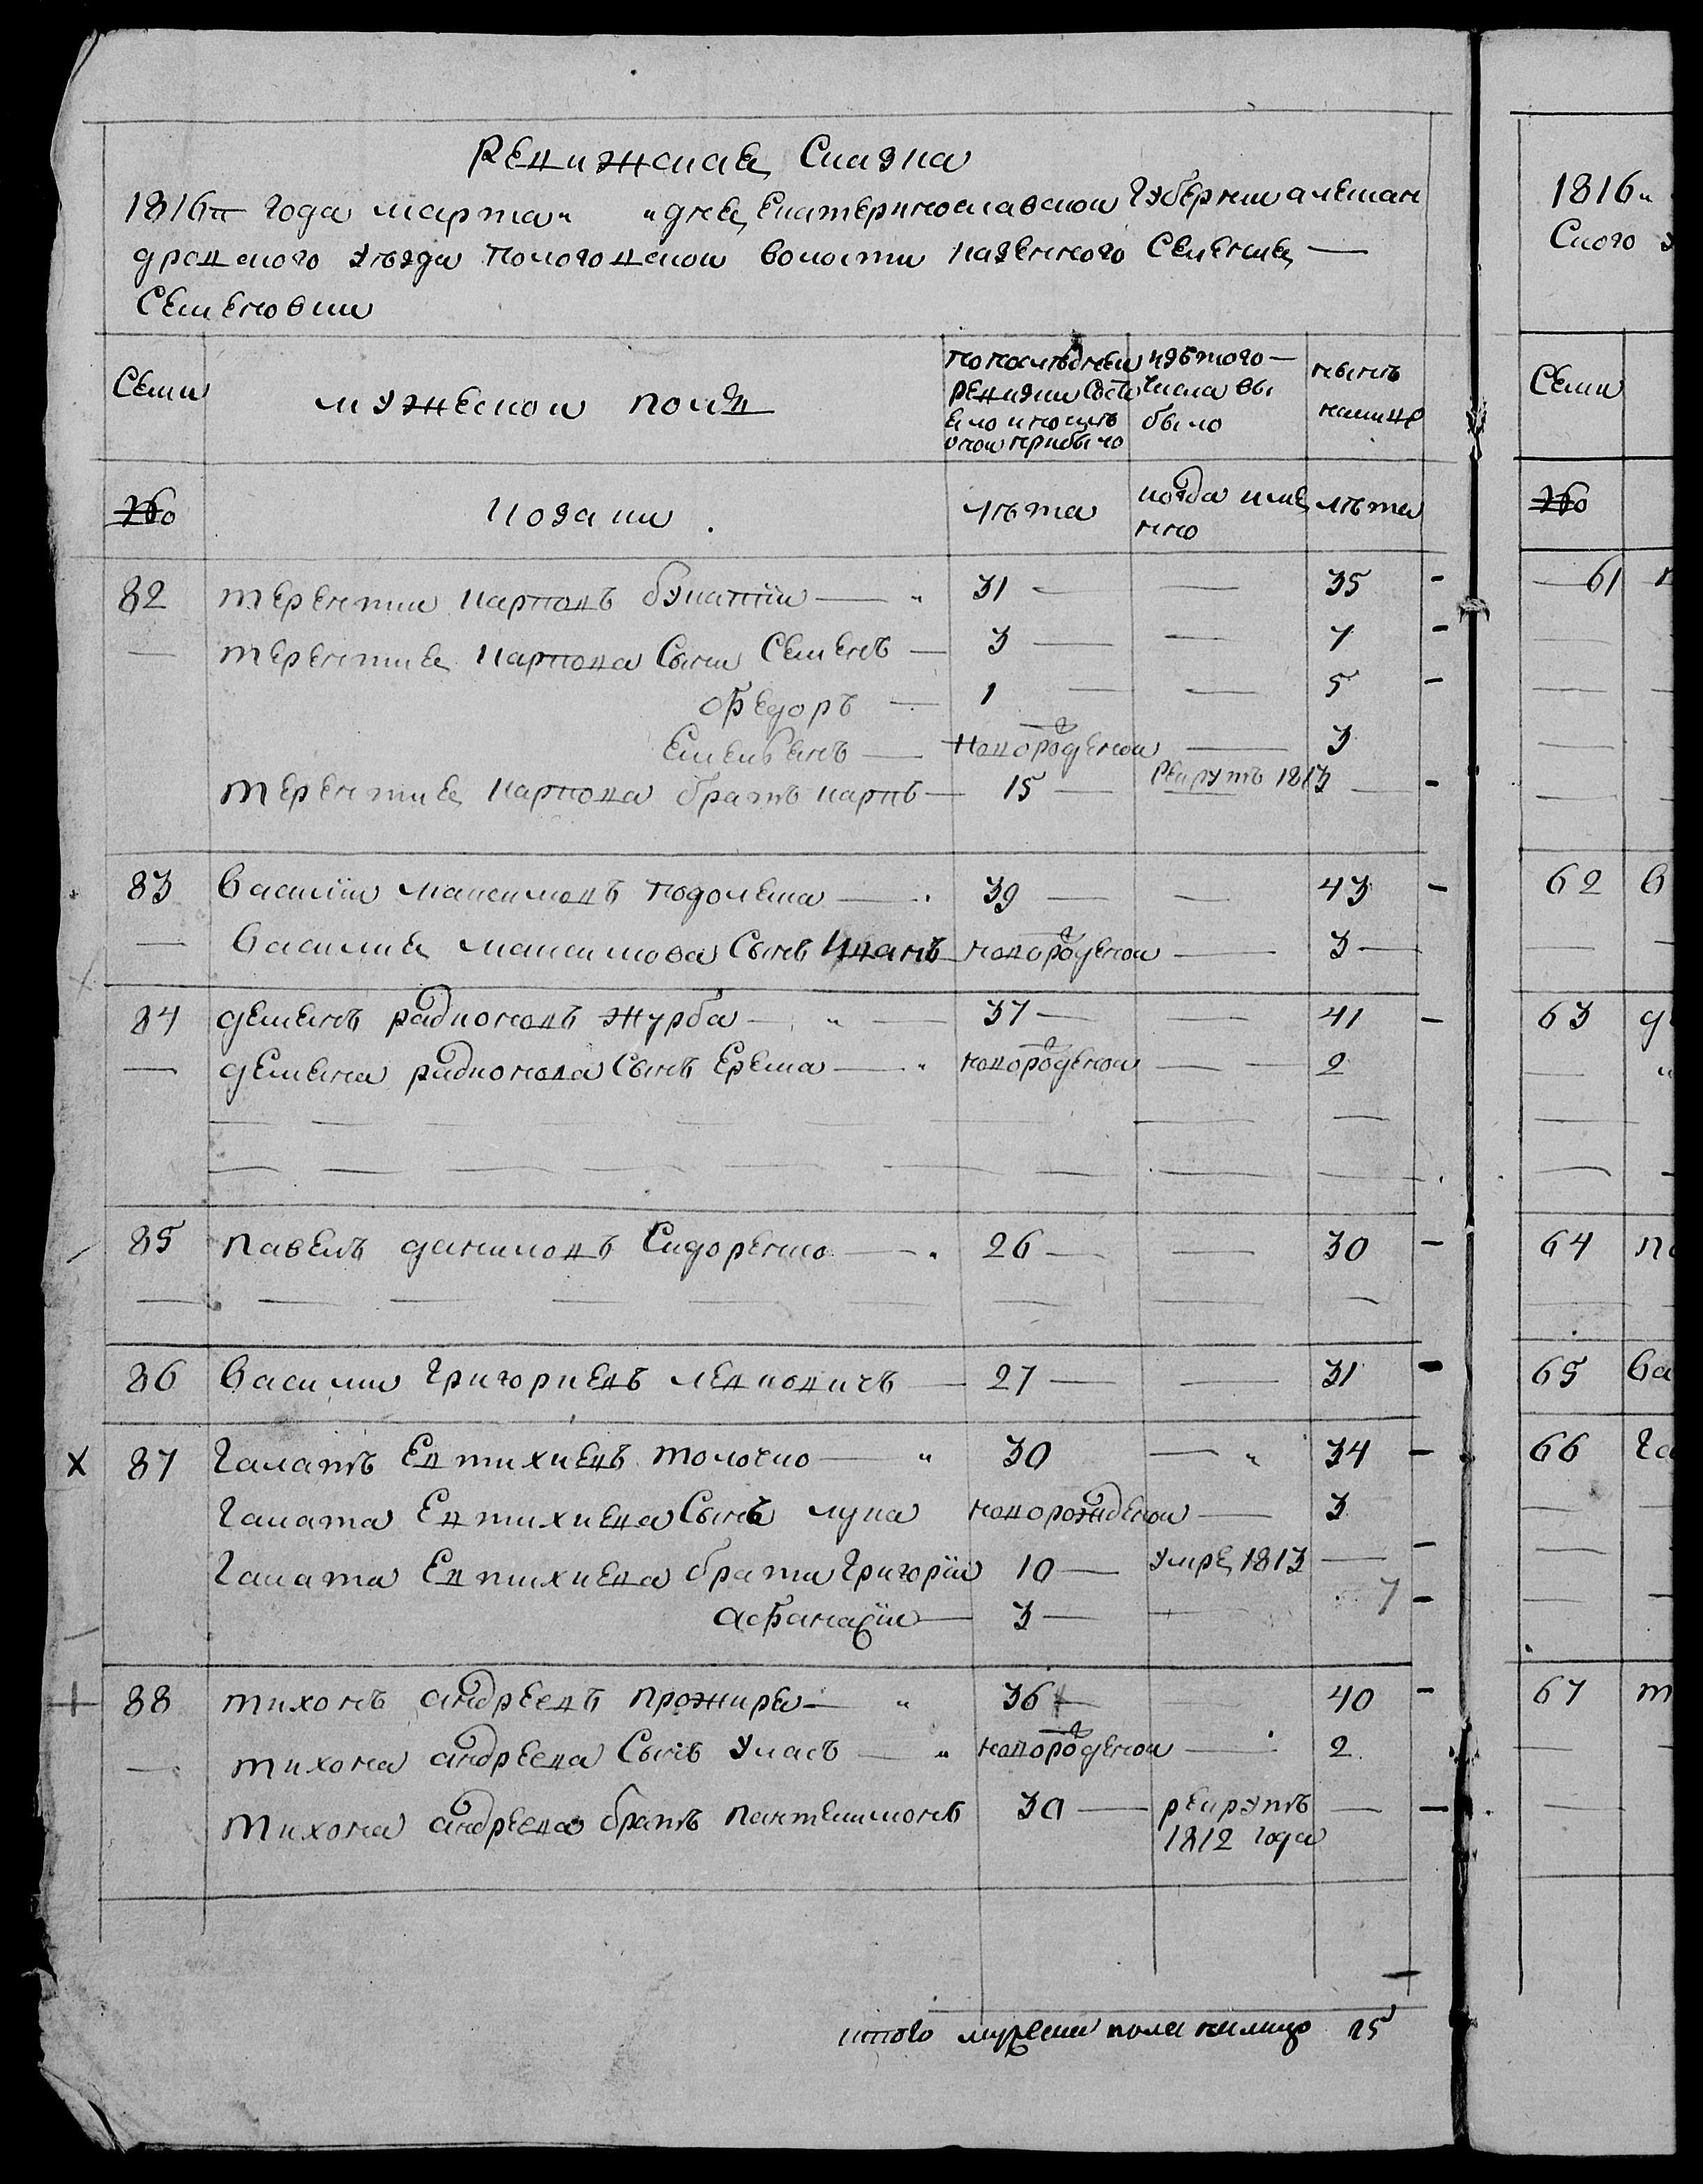 Ревижская Сказка
1816 года марта „ „ дня Екатеринославской Губернии алексан
дровского уезда пологовской волости казенного Селения —
Семеновки
Семи
мужеской полъ
по последней ревизии состояло и после оной прибыло
изъ того числа выбыло
ныне налицо
№
казаки.
лѣта
когда имянно
лѣта
82 терентии карповъ букатий — „ 31 — — 35
— терентия карпова Сыни Семенъ — 3 — — 7
Федоръ — 1 — — 5
Емельянъ — новорожденой — 3
терентия карпова братъ карпъ — 15 — Рекрутъ 1813 —
83 Василий максимовъ подолека — 39 — — 43
— Василия максимова Сынъ Иванъ новорожденой — 3 —
84 деменъ радионовъ журба — „ — 37 — — 41
— демена радионова Сынъ Ерема — „ новорожденой — — 2
85 павелъ даниловъ Сидоренко — „ 26 — — 30
86 Василии григориевъ левковичъ — 27 — — 31
х 87 Галатъ Евтихиевъ толочко — „ 30 — „ 34
Галата Евтихиева Сынъ лука новорожденои — 3
Галата Евтихиева брати Григорий 10 — умре 1813 —
афанасий — 3 — — 7
+ 88 тихонъ андреевъ прожира — „ 36 — 40
— тихона андреева Сынъ Уласъ — „ новорожденои — 2
тихона андреева братъ пантелимонъ 30 — рекрутъ —
1812 года
итого мужеска пола налицо 15
1816 „
Ского
Семи
№
61
62 в
63 д
64 па
65 Ва
66 Га
67 т